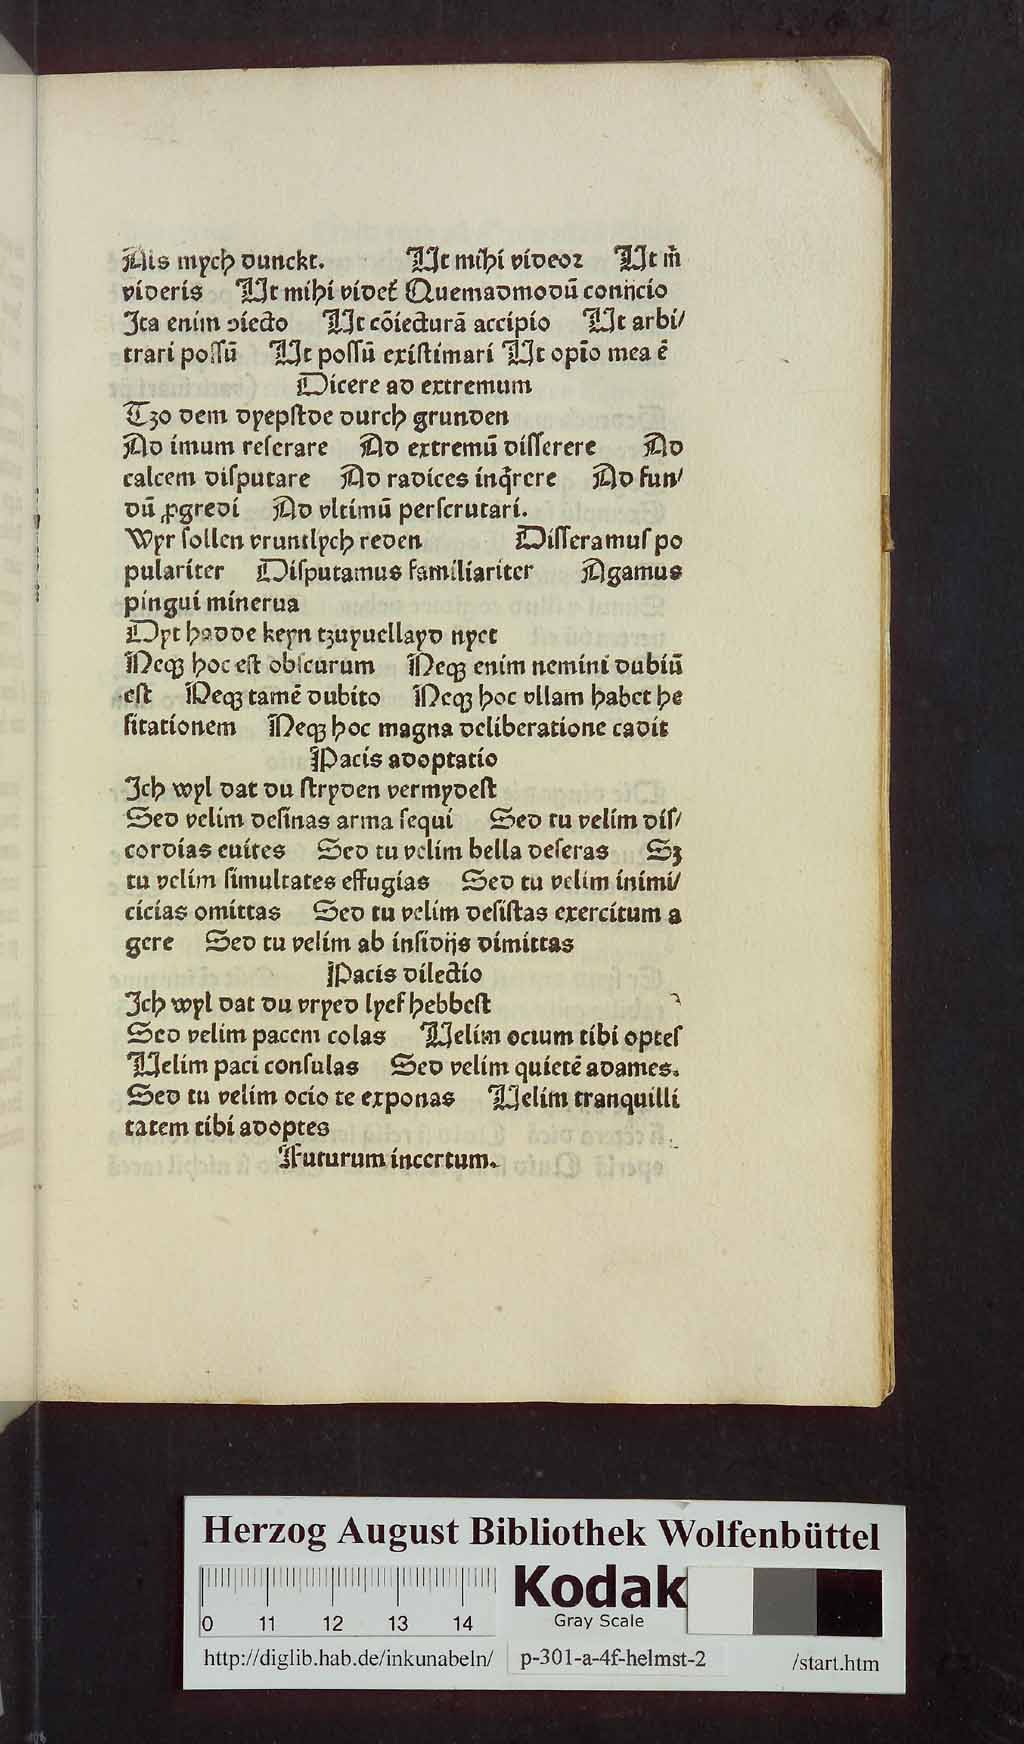 Als mych dunckt. Ut mihi videoꝛ Ut m̄
videris Ut mihi videt᷑ Quemadmodū coniicio
Ita enim ↄiecto Ut cōiecturā accipio Ut arbi/
trari poſſū Ut poſſū exiſtimari Ut opīo mea ē
Dicere ad extremum
Tzo dem dyepſtde durch grunden
Ad imum reſerare Ad extremū diſſerere Ad
calcem diſputare Ad radices inq̄rere Ad fun/
dū ꝓgredi Ad vltimū perſcrutari.
Wyr ſollen vruntlych reden Diſſeramuſ po
pulariter Diſputamus familiariter Agamus
pingui minerua
Dyt hadde keyn tzuyuellayd nyet
Neqꝫ hoc eſt obſcurum Neqꝫ enim nemini dubiū
eſt Neqꝫ tamē dubito Neqꝫ hoc vllam habet he
ſitationem Neqꝫ hoc magna deliberatione cadit
Pacis adoptatio
Ich wyl dat du ſtryden vermydeſt
Sed velim deſinas arma ſequi Sed tu velim diſ/
cordias euites Sed tu velim bella deſeras Sꝫ
tu velim ſimultates effugias Sed tu velim inimi/
cicias omittas Sed tu velim deſiſtas exercitum a
gere Sed tu velim ab inſidijs dimittas
Pacis dilectio
Ich wyl dat du vryed lyef hebbeſt
Sed velim pacem colas Velim ocium tibi opteſ
Velim paci conſulas Sed velim quietē adames.
Sed tu velim ocio te exponas Velim tranquilli
tatem tibi adoptes
Futurum incertum.
Herzog August Bibliothek Wolfenbüttel
0 11 12 13 14
Kodak
Gray Scale
http://diglib.hab.de/inkunabeln/ p-301-a-4f-helmst-2 /start.htm